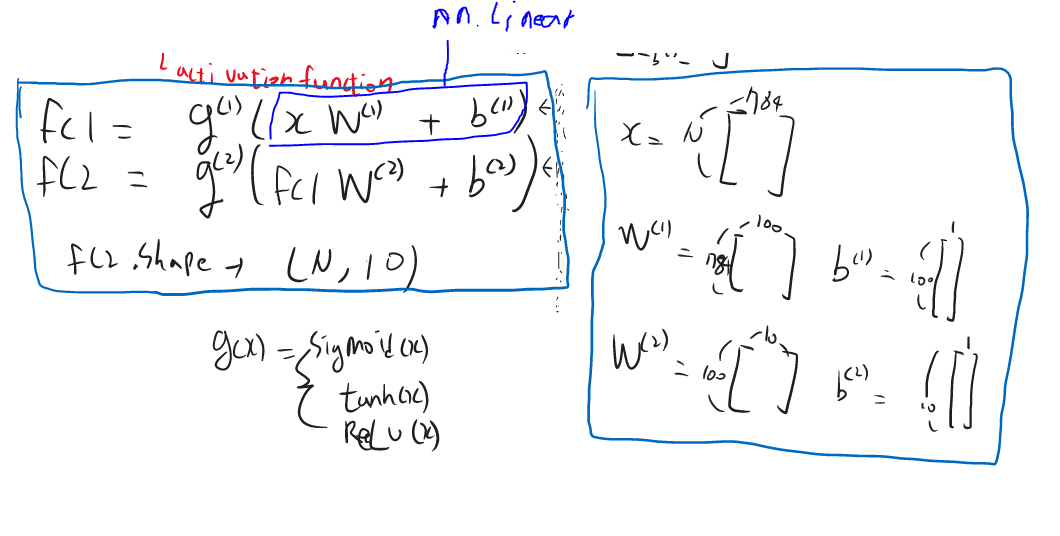 nn. Linear
activation function
fc1 = g⁽¹⁾(x W⁽¹⁾ + b⁽¹⁾) ←
fc2 = g⁽²⁾(fc1 W⁽²⁾ + b⁽²⁾) ←
fc2.shape → (N, 10)
g(x) = { sigmoid(x)
tanh(x)
ReLU(x)
x = N [ ] 784
W⁽¹⁾ = 784 [ ] 100 b⁽¹⁾ = 100 [ ] 1
W⁽²⁾ = 100 [ ] 10 b⁽²⁾ = 10 [ ] 1